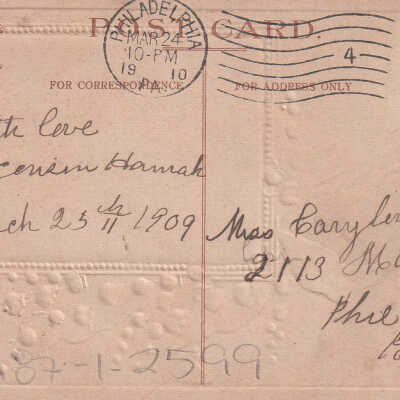 POST CARD.
PHILADELPHIA
MAR 24
10-PM
19 10
PA.
4
FOR CORRESPONDENCE
FOR ADDRESS ONLY
th love
cousin Hannah
ch 25th 1909
Miss
2113
Phil
87-1-2599